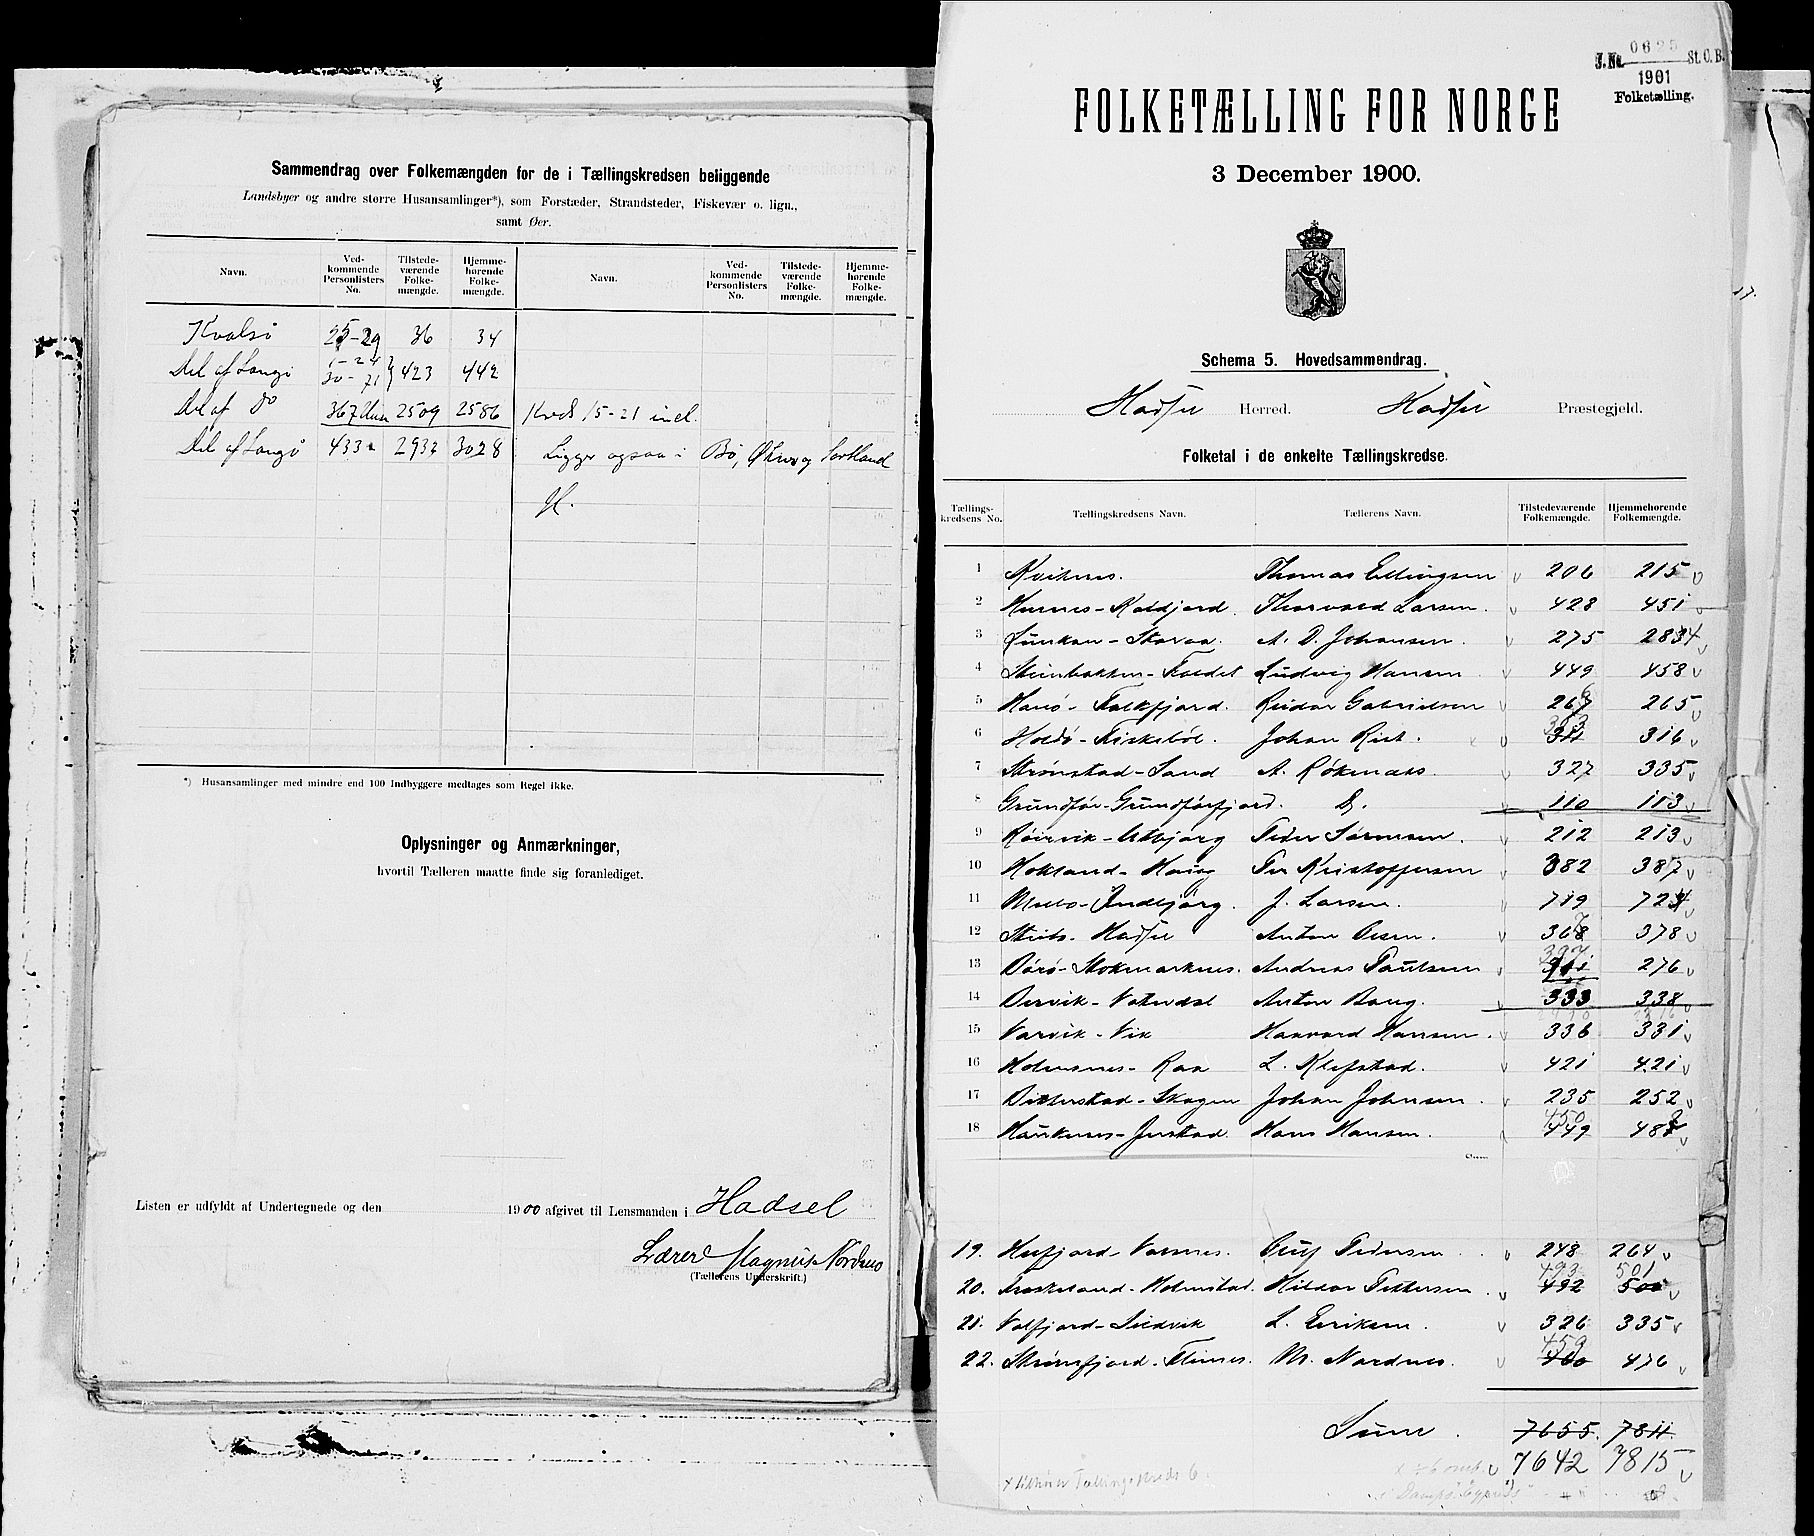 Sammendrag over Folkemængden for de i Tællingskredsen beliggende
Landsbyer og andre større Husansamlinger*), som Forstæder, Strandsteder, Fiskevær o. lign.,
samt Øer.
Navn. Ved-kommende Personlisters No. Tilstede-værende Folke-mængde. Hjemme-hørende Folke-mængde. Navn. Ved-kommende Personlisters No. Tilstede-værende Folke-mængde. Hjemme-hørende Folke-mængde.
Kvalsö 25-29 36 34
Del af Langö 30-71 } 423 442
Del af do 367 2509 2586 Kreds 15-21 incl.
Del af Langö 433 2932 3028 Ligger ogsaa i Bö, Øksnes og Sortland
H.
*) Husansamlinger med mindre end 100 Indbyggere medtages som Regel ikke.
Oplysninger og Anmærkninger,
hvortil Tælleren maatte finde sig foranlediget.
Listen er udfyldt af Undertegnede og den 1900 afgivet til Lensmanden i Hadsel
Lærer Magnus Nordnes
(Tællerens Underskrift.)
J. No. 0625 St. C. B.
1901
Folketælling.
FOLKETÆLLING FOR NORGE
3 December 1900.
Schema 5. Hovedsammendrag.
Hadsel Herred. Hadsel Præstegjeld.
Folketal i de enkelte Tællingskredse.
Tællings-kredsens No. Tællingskredsens Navn. Tællerens Navn. Tilstedeværende Folkemængde. Hjemmehørende Folkemængde.
1 Kviknes. Thomas Ellingsen 206 215
2 Hennes-Kaldjord. Thorvald Larsen. 428 451
3 Lunkan-Skaraa. A. D. Johansen. 275 284
4 Steinbakken-Faldet Ludvig Hansen 449 458
5 Hanö-Falkfjord. Reidar Gabrielsen 266 265
6 Holdö-Fiskeböl. Johan Rist. 311 316
7 Strönstad-Sand A. Röknæs. 327 335
8 Grundför-Grundförfjord. D. 110 113
9 Röirvik-Usbjörg Peder Sörensen. 212 213
10 Hokland-Haug Per Kristoffersen 382 387
11 Melbo-Indbjörg. J. Larsen. 719 724
12 Hadsel Anton Olsen. 367 378
13 Börö-Stokmarknes. Andreas Paulsen 276
14 Anton Bang. 333 338
15 Varvik-Vik Haavard Hansen. 336 331
16 Holmsnes-Raa L. Klefstad. 421 421
17 Ditterstad-Skagen Johan Johnsen. 235 252
18 Haukenes-Jenstad. Hans Hansen. 450 449 482
19. Oluf Pedersen 248 264
493 501
20. Frøskeland-Holmstad. Hildor Pettersen 492 500
21. Valfjord-Sildvik L. Eriksen. 326 335
459
22. Strømfjord-Flines. M. Nordnes. 460 476
Sum. 7655. 7811.
7642 7815
Tællingskreds 6.